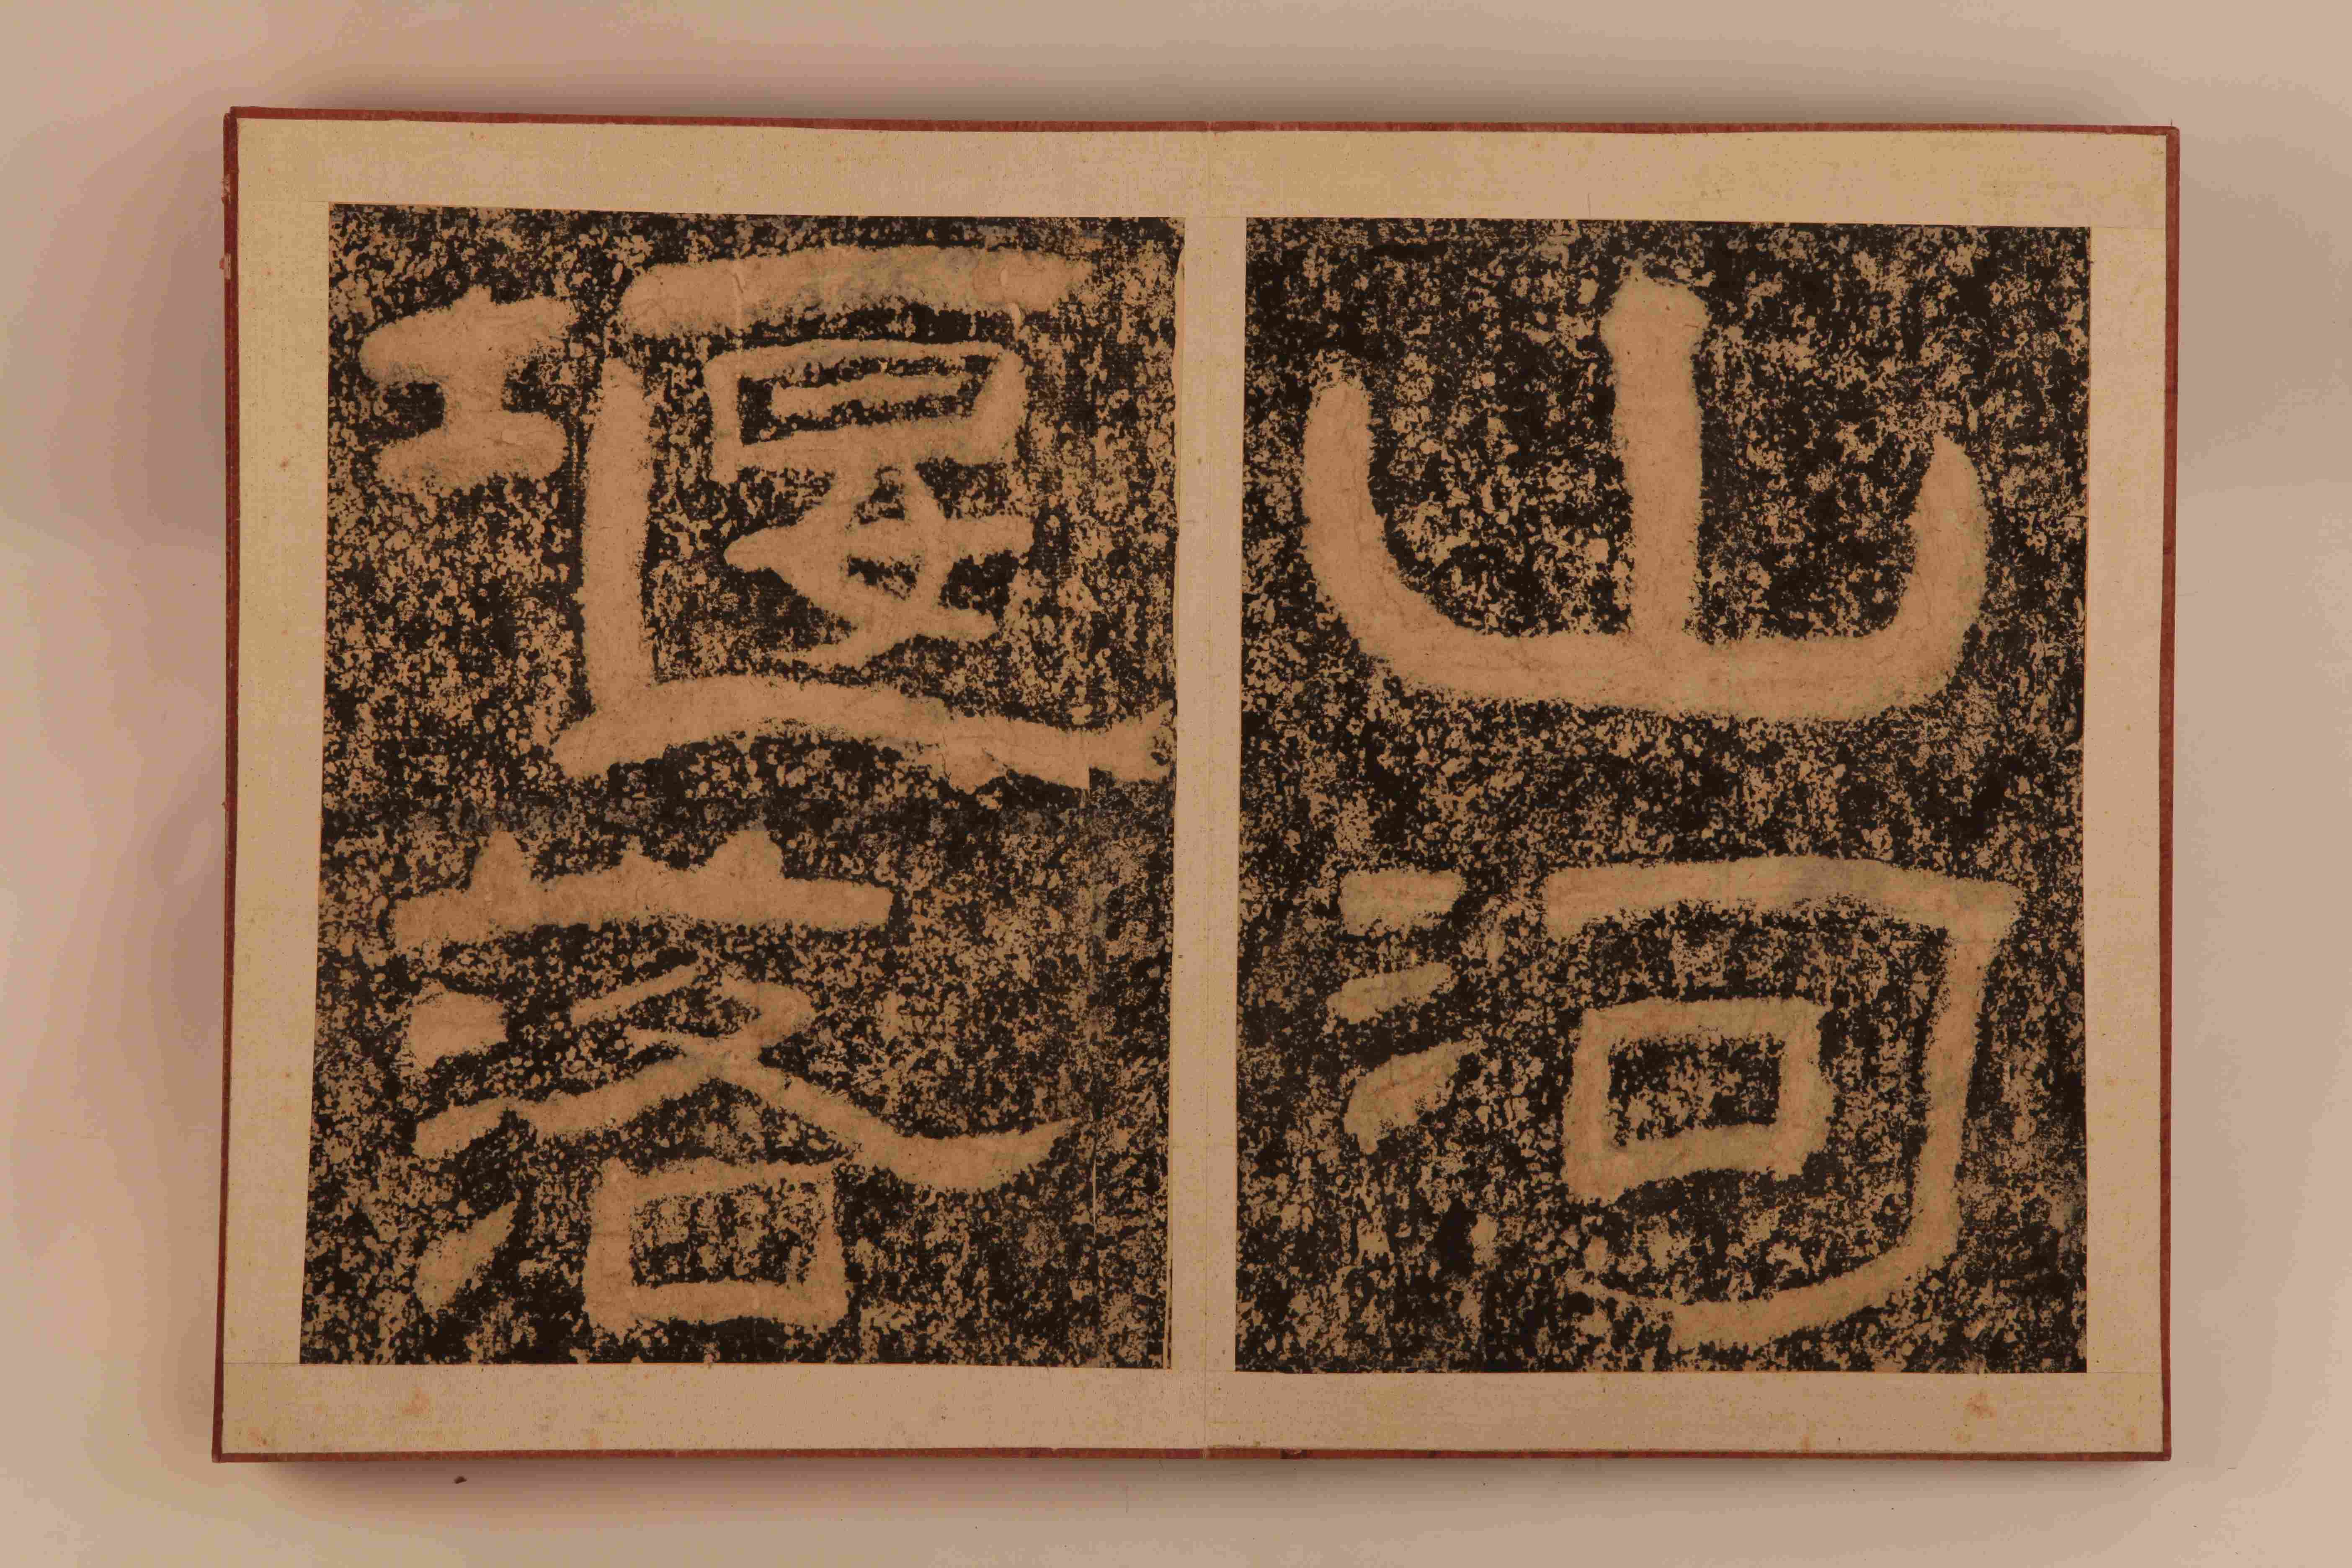 山河
堰落